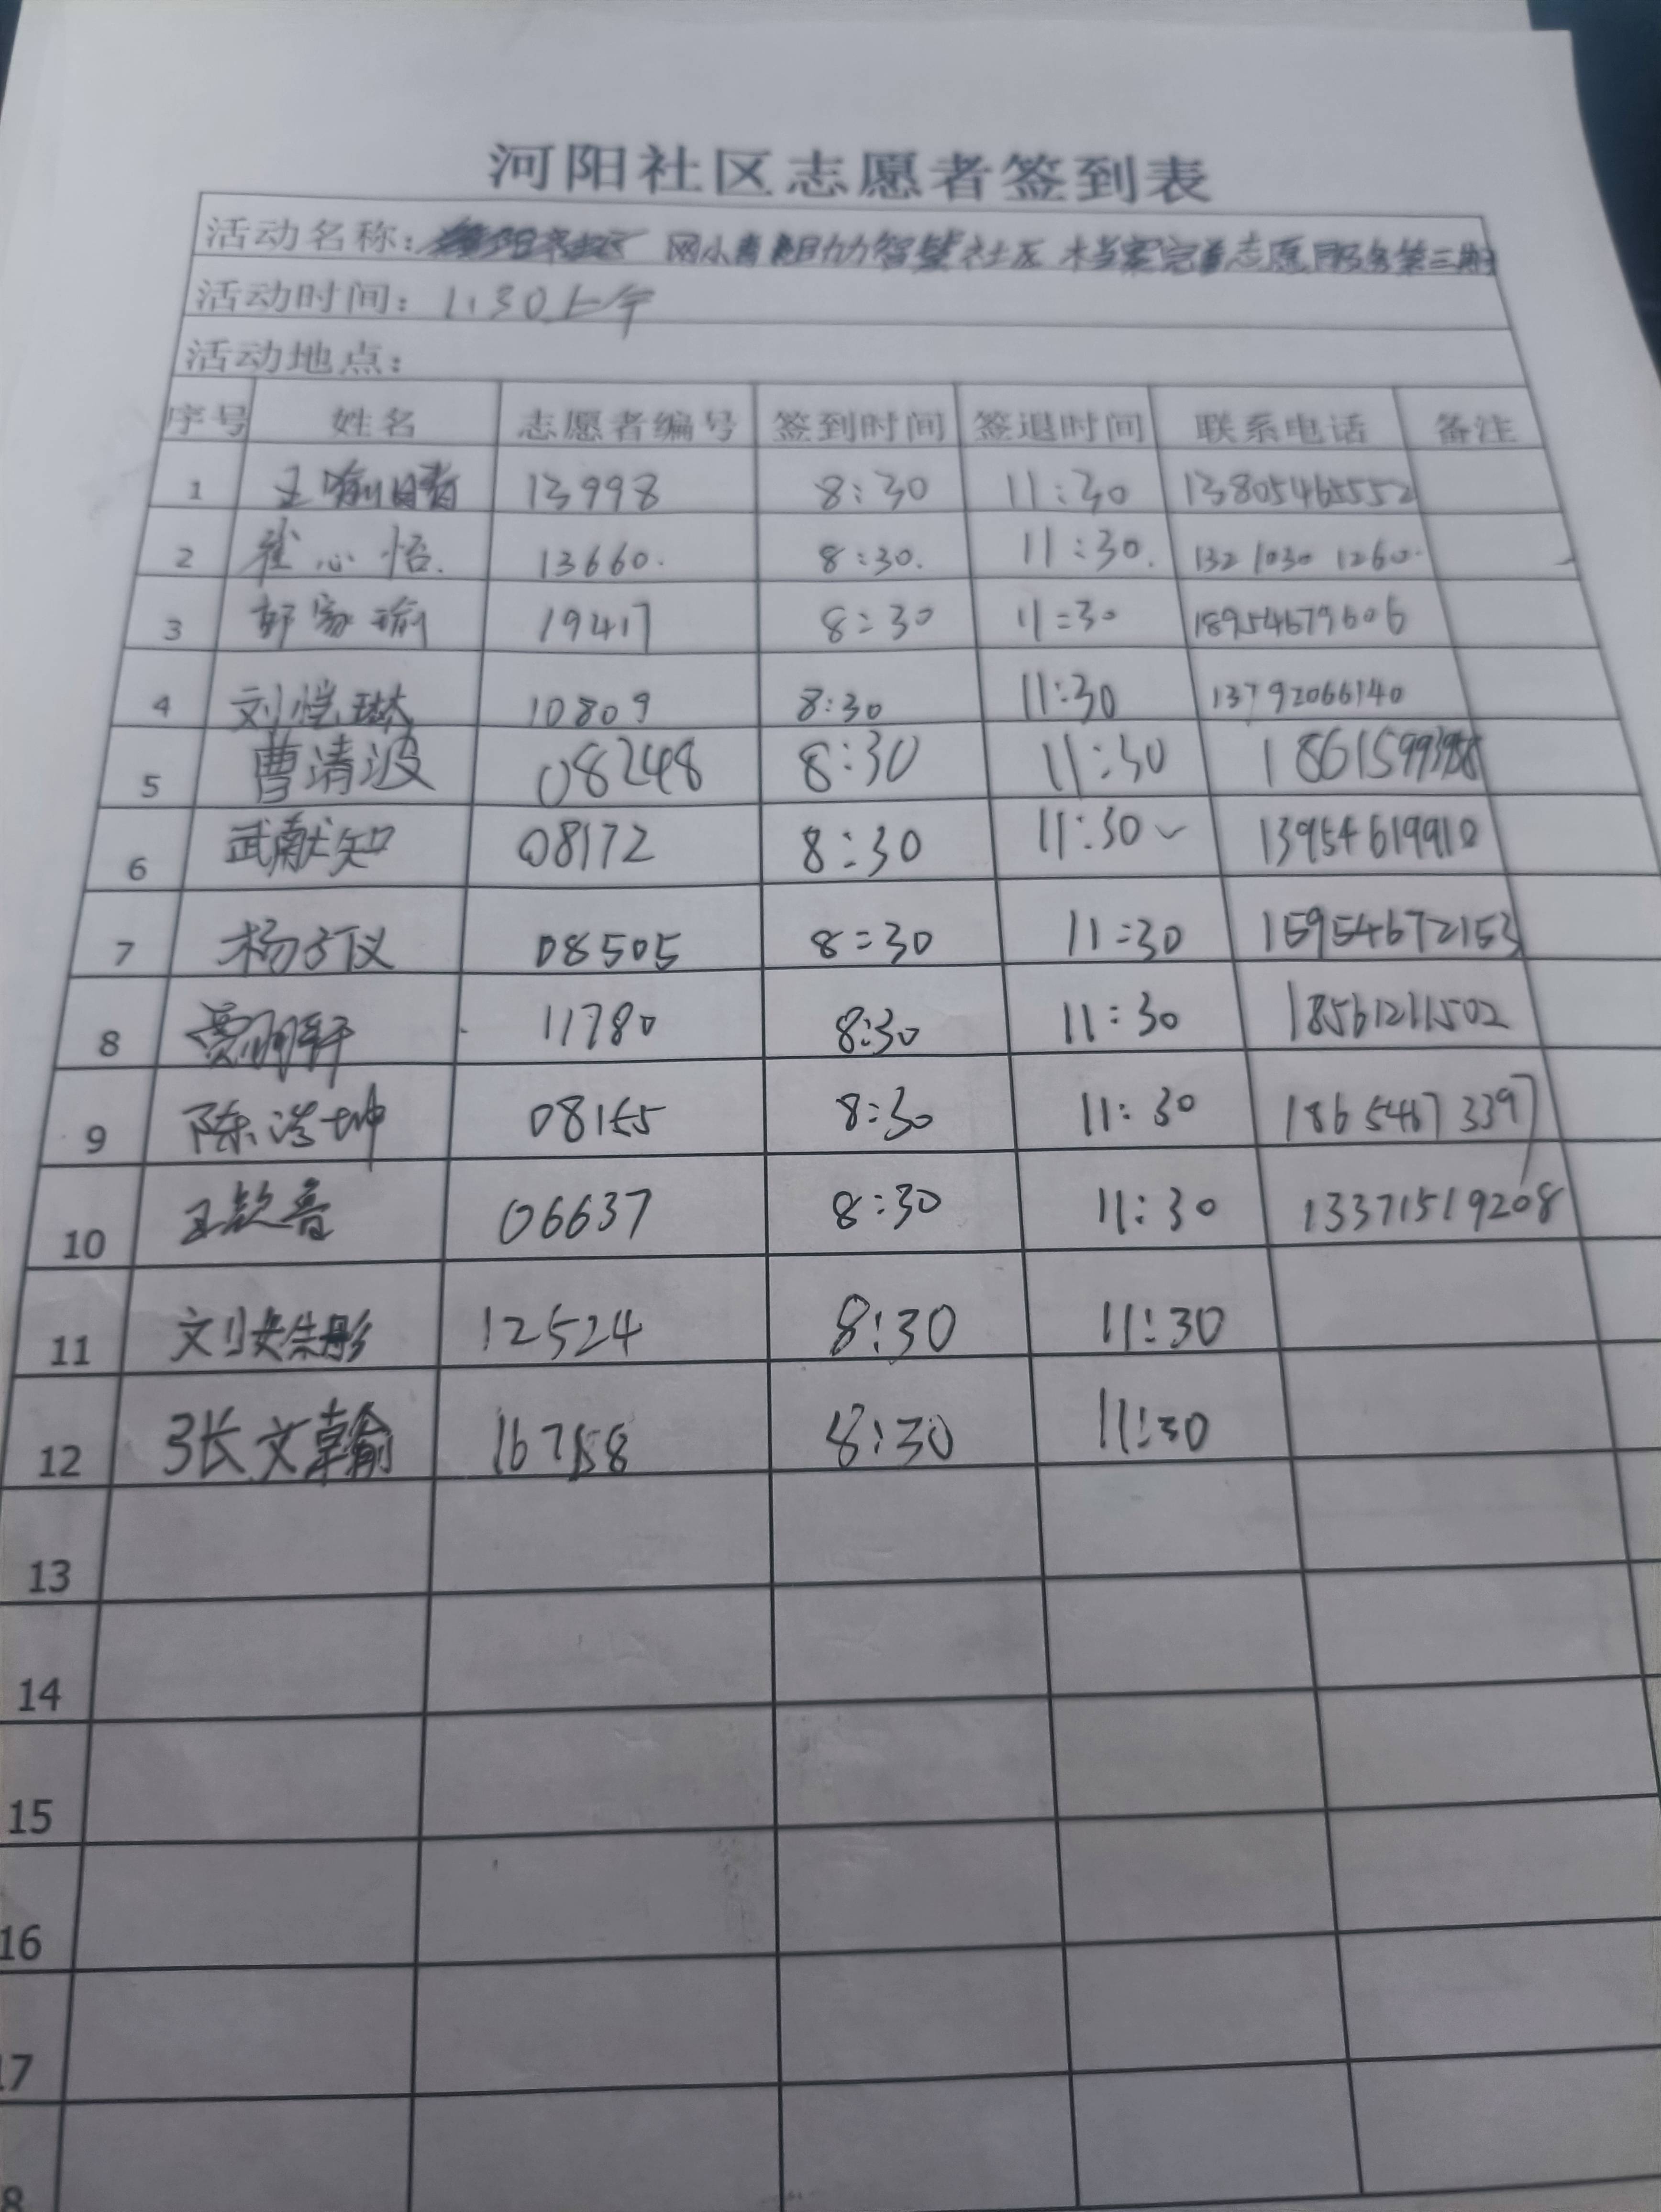 河阳社区志愿者签到表
活动名称： 网小青助力智慧社区 档案完善志愿服务第三期
活动时间： 1.30上午
活动地点：
序号 姓名 志愿者编号 签到时间 签退时间 联系电话 备注
1 王喻 13998 8:30 11:30 13805465552
2 崔心悟. 13660. 8:30. 11:30. 132 1030 1260.
3 郭家瑜 19417 8:30 11:30 18954679606
4 刘恺琳 10809 8:30 11:30 13792066140
5 曹清波 08248 8:30 11:30
6 武献知 08172 8:30 11:30 13954619910
7 杨子仪 08505 8:30 11:30 15954672153
8 11780 8:30 11:30 18561211502
9 陈浩坤 08155 8:30 11:30 1865467 3397
10 王钦鲁 06637 8:30 11:30 13371519208
11 12524 8:30 11:30
12 张文翰 8:30 11:30
13
14
15
16
17
8